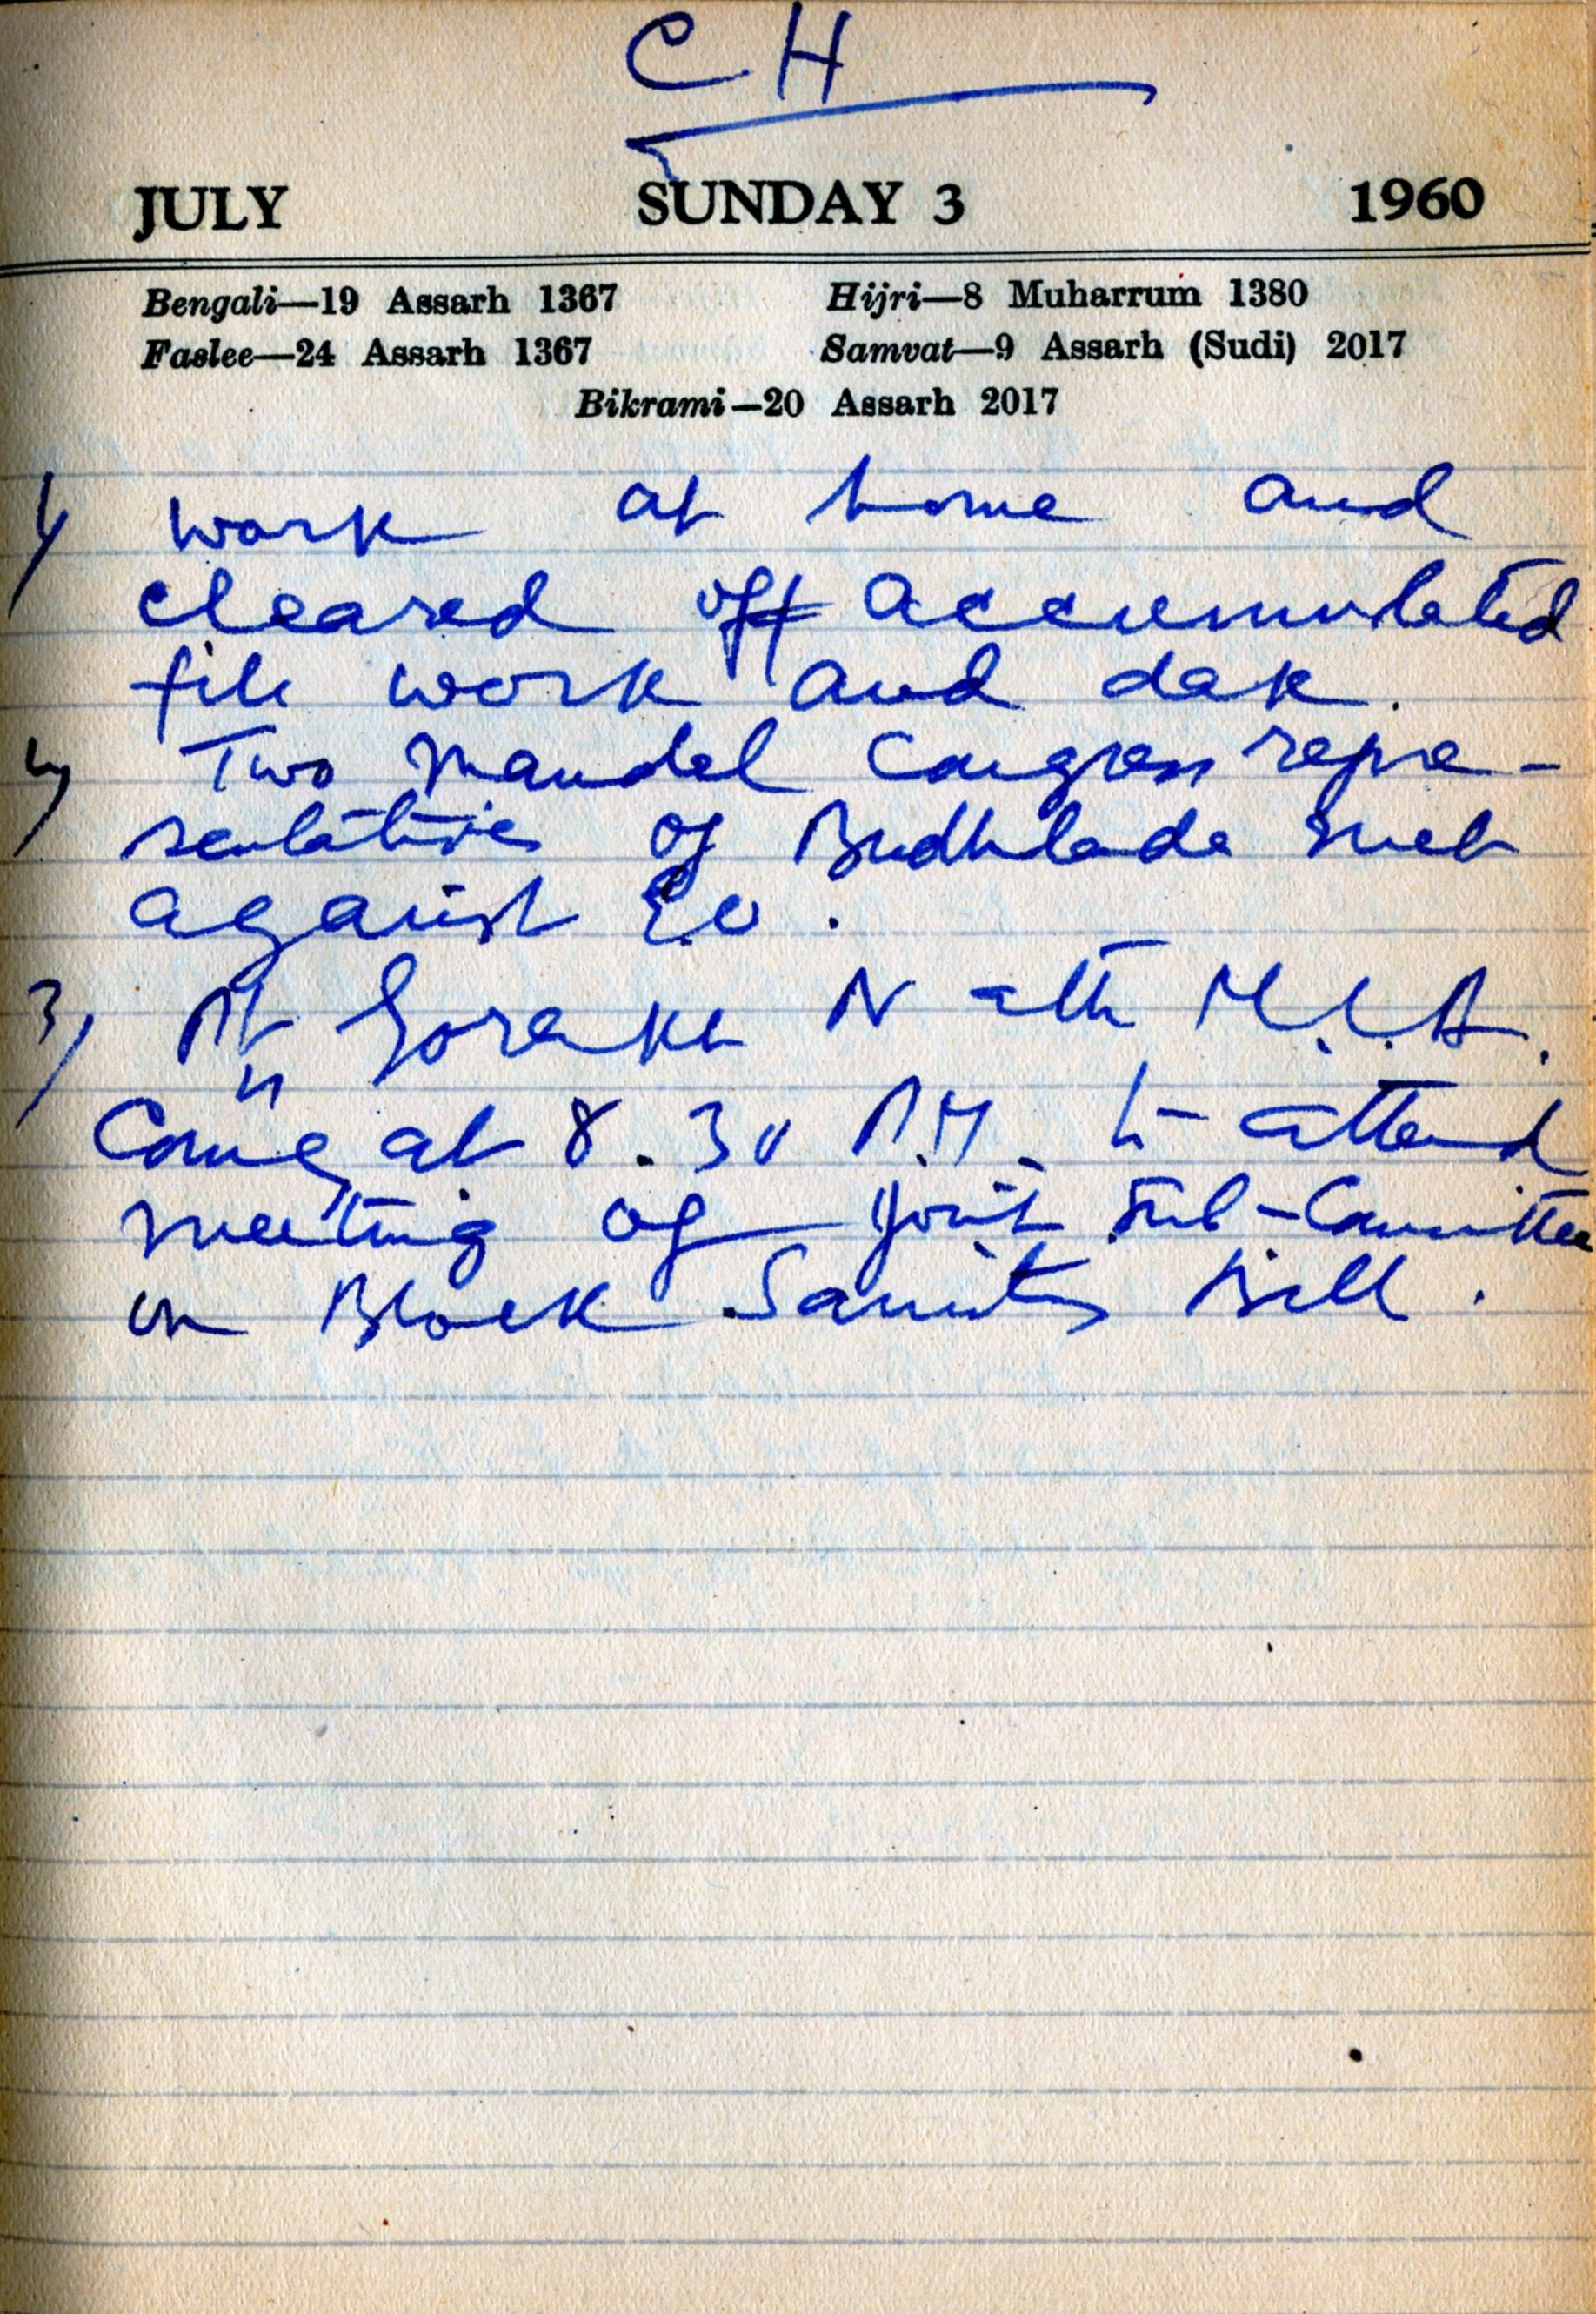 CH
JULY SUNDAY 3 1960
Bengali—19 Assarh 1367 Hijri—8 Muharrum 1380
Faslee—24 Assarh 1367 Samvat—9 Assarh (Sudi) 2017
Bikrami—20 Assarh 2017
1) work at home and
cleared off accumulated
file work and dak.
2) Two Mandal Congress repre-
sentatives of Budhlada met
against E.O.
3) Pt Gorakh Nath M.L.A.
Coming at 8.30 P.M. to attend
meeting of joint Sub-Committee
on Block Samities Bill.